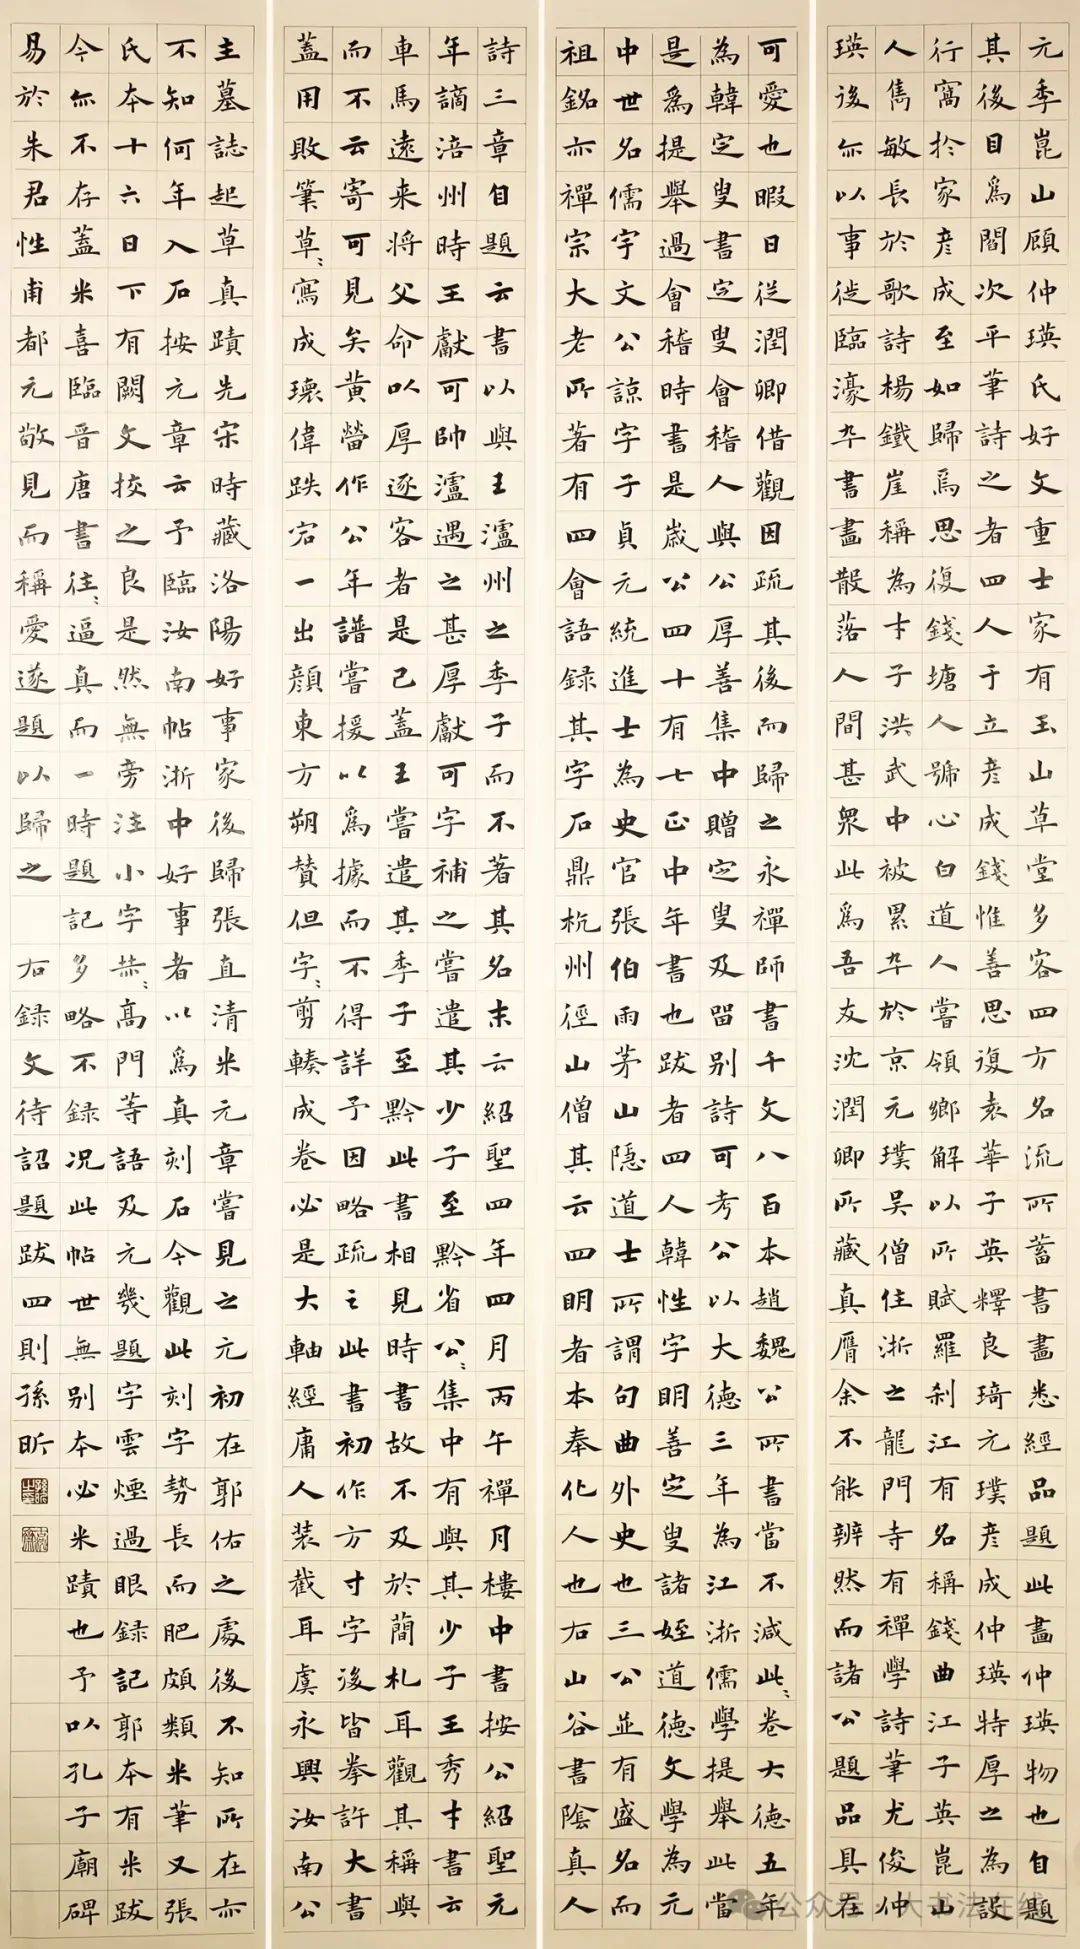 元季崑山顧仲瑛氏好文重士家有玉山草堂多客四方名流所蓄書畫悉經品題此畫仲瑛物也自題
其後目為閻次平筆詩之者四人于立彥成錢惟善思復袁華子英釋良琦元璞彥成仲瑛特厚之為設
行窩於家彥成至如歸焉思復錢塘人號心白道人嘗領鄉解以所賦羅剎江有名稱錢曲江子英崑山
人雋敏長於歌詩楊鐵崖稱為才子洪武中被累卒於京元璞吳僧住浙之龍門寺有禪學詩筆尤俊仲
瑛後亦以事徙臨濠卒書畫散落人間甚眾此為吾友沈潤卿所藏真贗余不能辨然而諸公題品具在
可愛也暇日從潤卿借觀因疏其後而歸之永禪師書千文八百本趙魏公所書當不減此々卷大德五年
為韓定叟書定叟會稽人與公厚善集中贈定叟及留別詩可考公以大德三年為江浙儒學提舉此當
是為提舉過會稽時書是歲公四十有七正中年書也跋者四人韓性字明善定叟諸姪道德文學為元
中世名儒宇文公諒字子貞元統進士為史官張伯雨茅山隱道士所謂句曲外史也三公並有盛名而
祖銘亦禪宗大老所著有四會語録其字石鼎杭州徑山僧其云四明者本奉化人也右山谷書陰真人
詩三章自題云書以與王瀘州之季子而不著其名末云紹聖四年四月丙午禪月樓中書按公紹聖元
年謫涪州時王獻可帥瀘遇之甚厚獻可字補之嘗遣其少子至黔省公々集中有與其少子王秀才書云
車馬遠来將父命以厚逐客者是已蓋王嘗遣其季子至黔此書相見時書故不及於簡札耳觀其稱與
而不云寄可見矣黃㽦作公年譜嘗援以為據而不得詳予因略疏之此書初作方寸字後皆拳許大書
蓋用敗筆草々寫成瓌偉跌宕一出顏東方朔贊但字々剪輳成卷必是大軸經庸人裝截耳虞永興汝南公
主墓誌起草真蹟先宋時藏洛陽好事家後歸張直清米元章嘗見之元初在郭佑之處後不知所在亦
不知何年入石按元章云予臨汝南帖浙中好事者以為真刻石今觀此刻字勢長而肥頗類米筆又張
氏本十六日下有闕文挍之良是然無旁注小字赫々高門等語及元幾題字雲煙過眼録記郭本有米跋
今亦不存蓋米喜臨晉唐書往々逼真而一時題記多略不録況此帖世無別本必米蹟也予以孔子廟碑
易於朱君性甫都元敬見而稱愛遂題以歸之 右録文待詔題跋四則孫昕
公众号 · 大书法在线